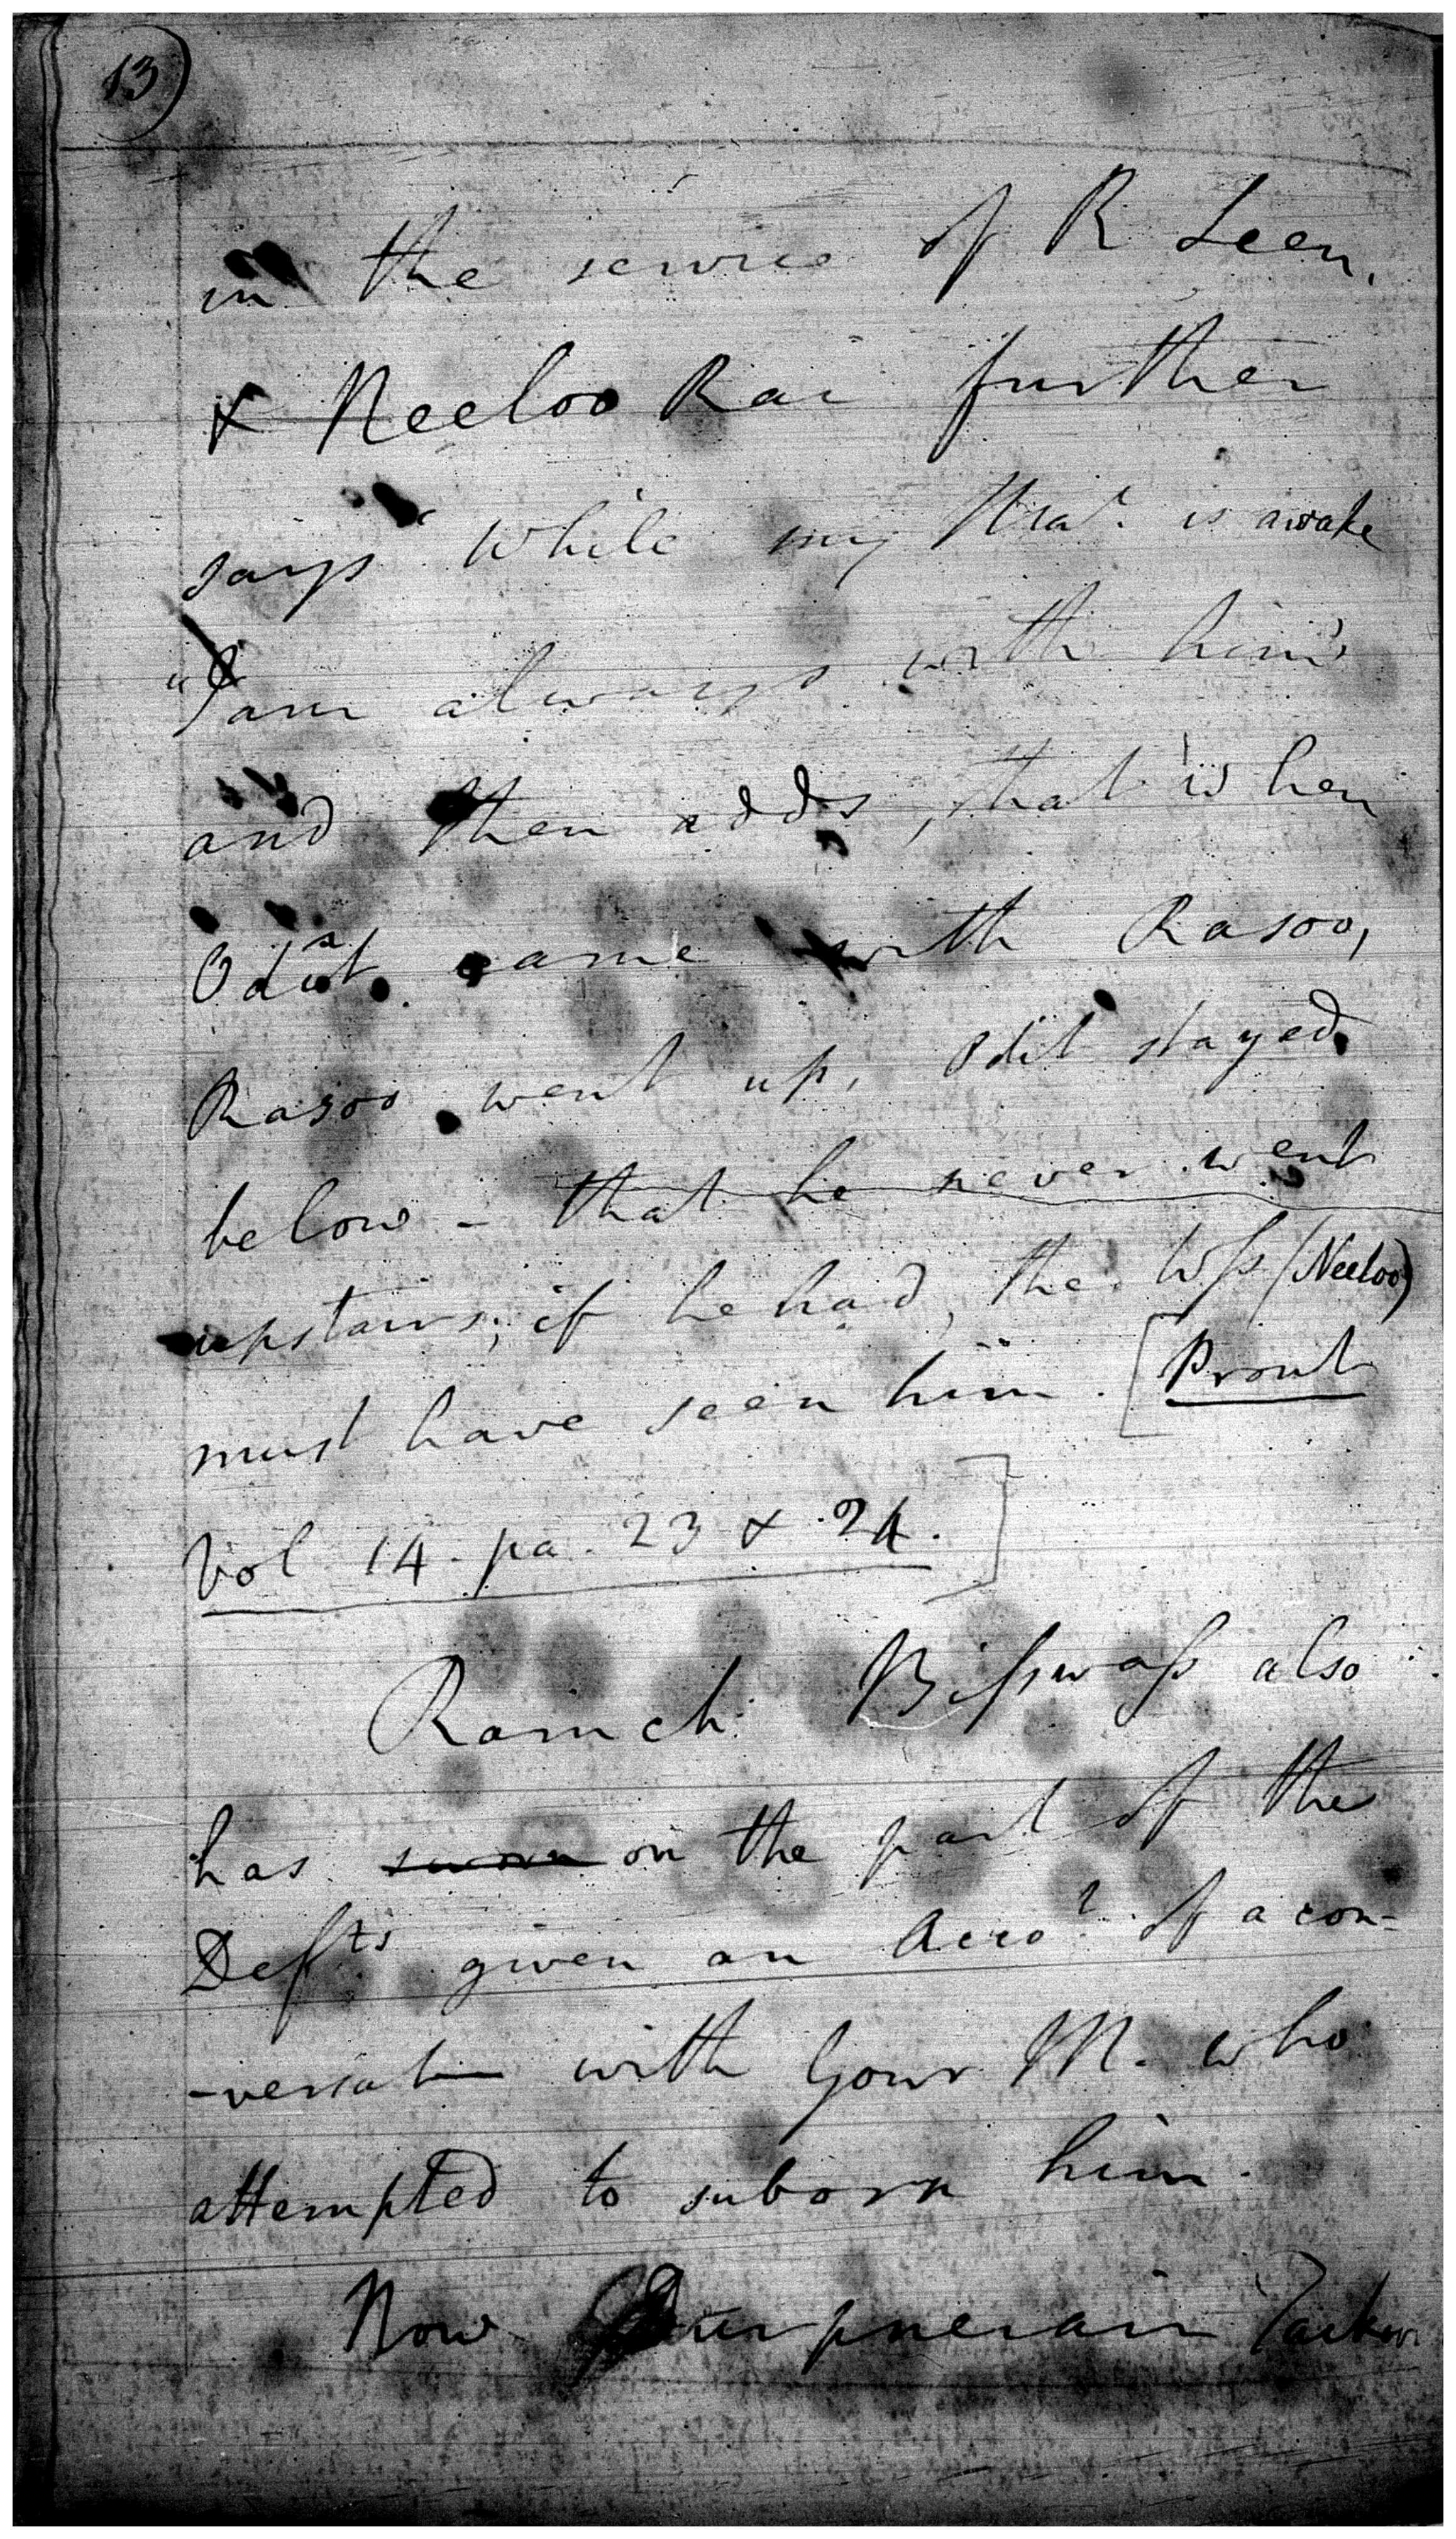 13)
in the service of R Seen,
& Neeloo Rai further
says "While my Mar. is awake
"I am always with him"
and then adds, that when
Odit came with Rasoo,
Rasoo went up, Odit stayed
below - that he never went
upstairs; if he had, the Wss (Neeloo)
must have seen him. [Prout
Vol 14. pa. 23 & 24.]
Ramch. Bisswass also
has sworn on the part of the
Defts given an Acco.t of a con=
-versatn with Gour M. who
attempted to suborn him.
Now